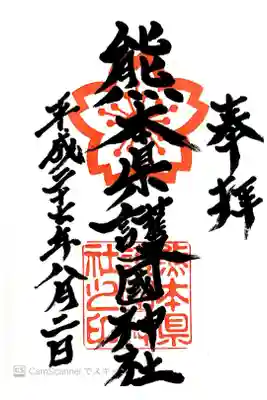 奉拝
熊本県護國神社
平成二十七年八月二日
熊本県
護國神
社之印
CamScanner でスキャン